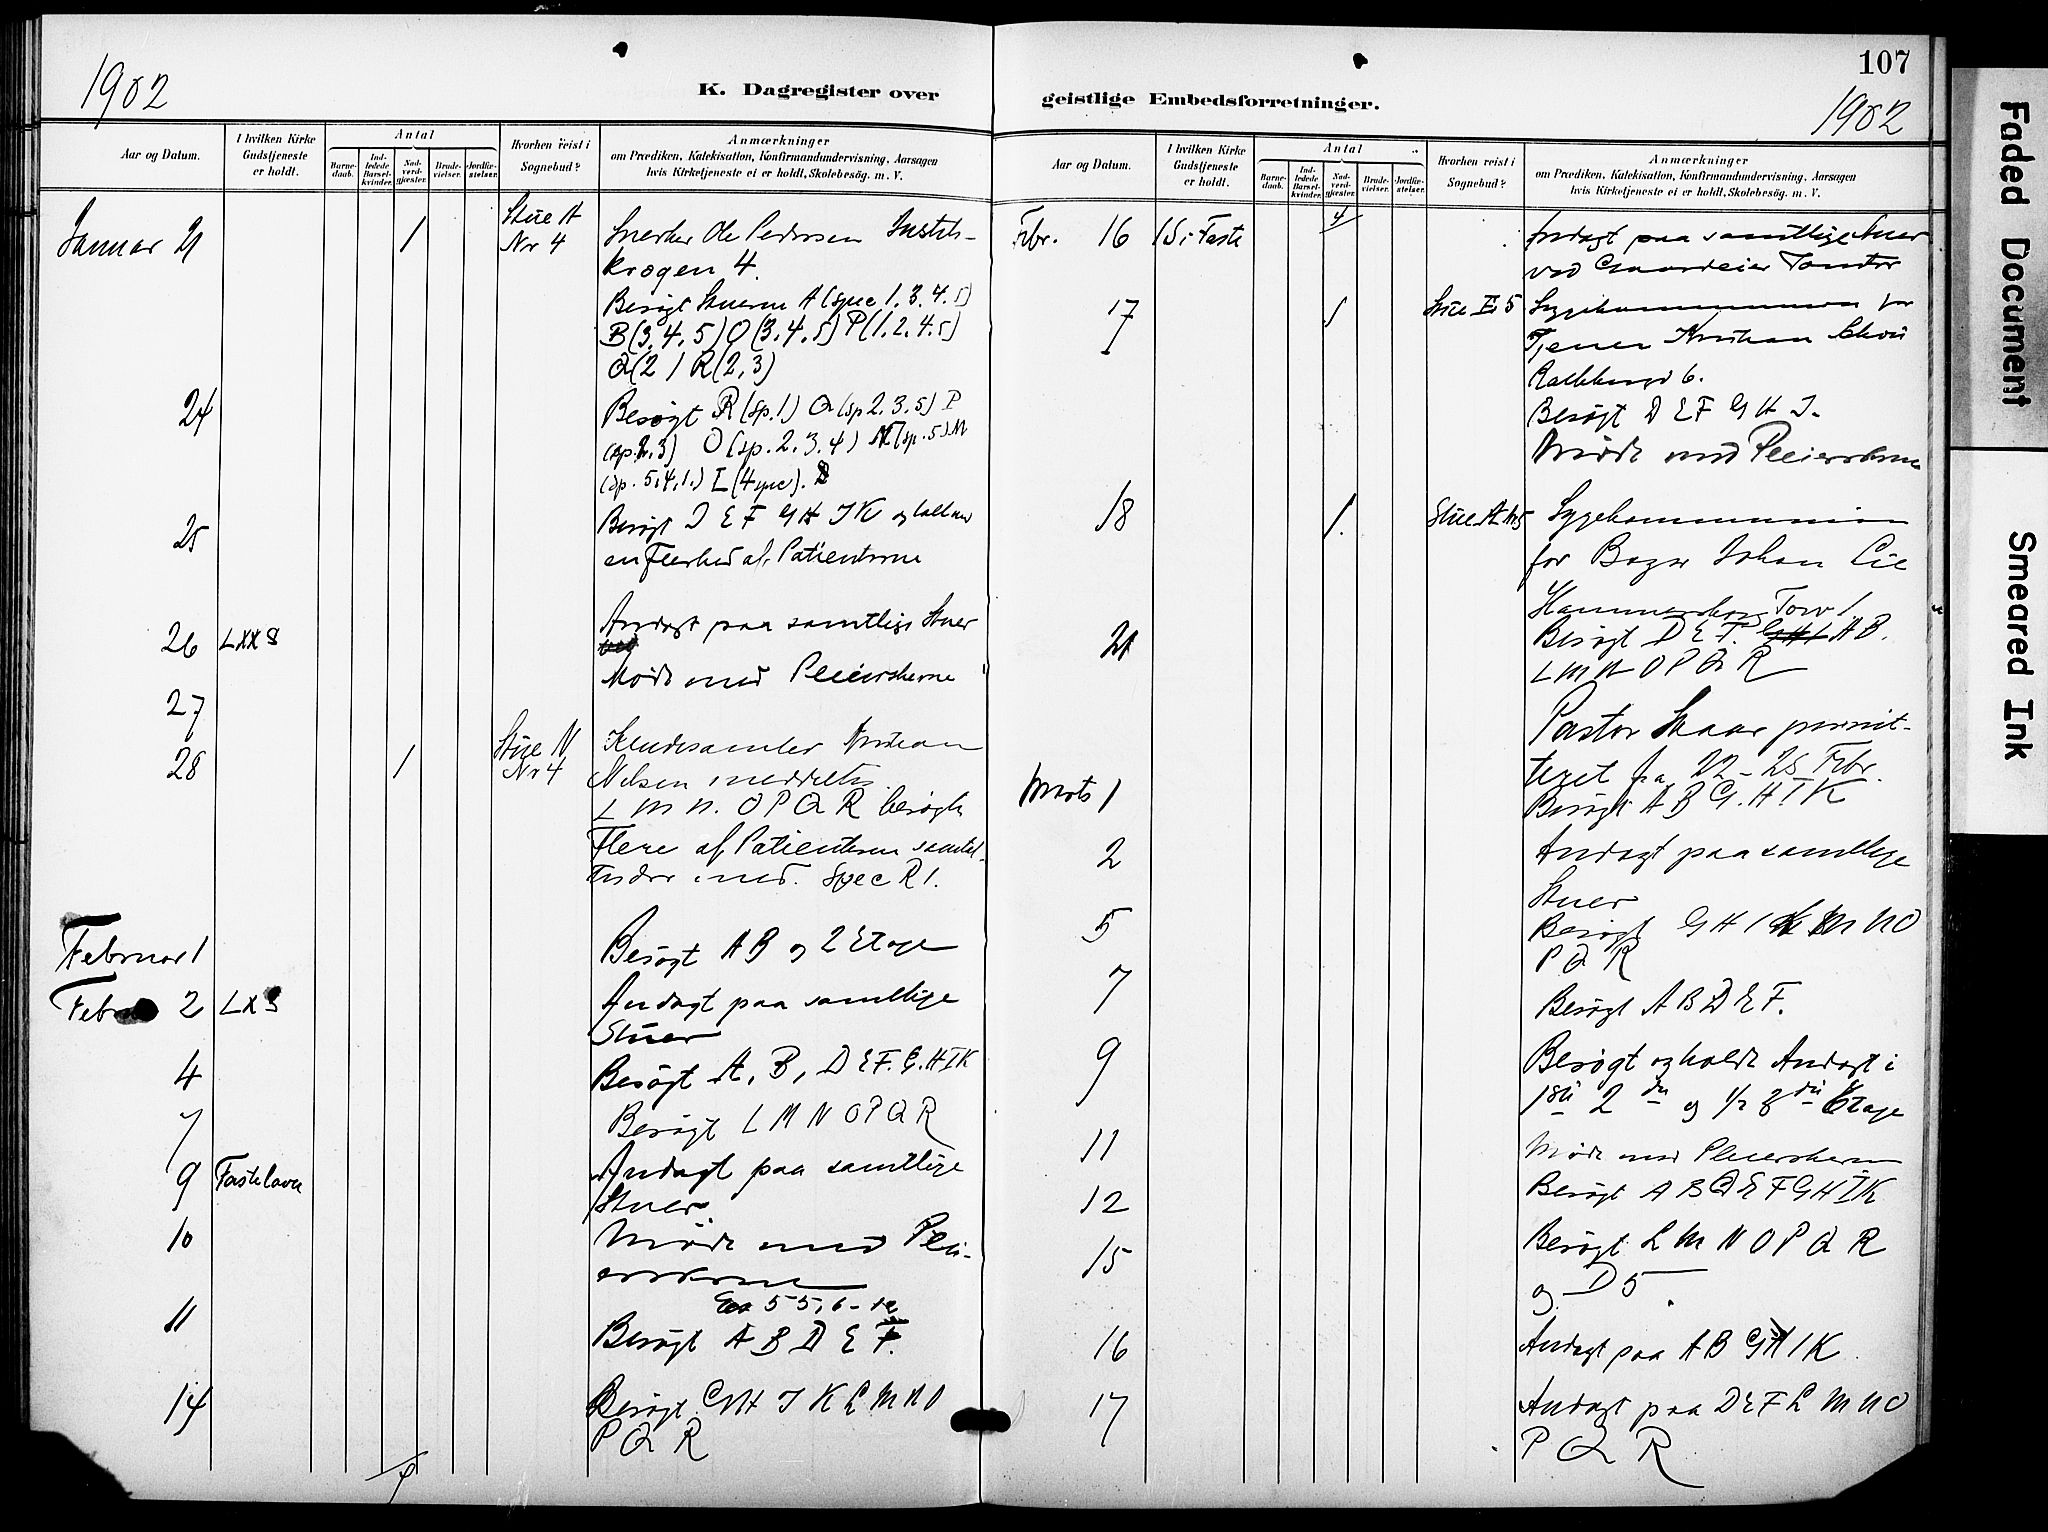 1902
K. Dagregister over
Aar og Datum.
I hvilken Kirke
Gudstjeneste
er holdt.
Antal
Barne-
daab.
Ind-
ledede
Barsel-
kvinder.
Nad-
verd-
gjæster.
Brude-
vielser.
Jordfæ-
stelser.
Hvorhen reist i
Sognebud?
Anmærkninger
om Prædiken, Katekisation, Konfirmandundervisning, Aarsagen
hvis Kirketjeneste ei er holdt, Skolebesøg. m. V.
Januar 21 1 Stue A
Nr 4
Snerker Ole Pedersen
krogen 4.
Besøgt Stuerne A (spec 1. 3. 4. 5)
B (3, 4, 5) O (3. 4. 5) P (1, 2. 4. 5)
Q (2) R (2, 3)
24 Besøgt R (sp. 1) Q (sp 2. 3. 5) P
(sp. 2. 3) O (sp. 2. 3. 4) N (sp. 5) M
(sp. 5, 4, 1.) L (4 spec).
25 Besøgt D E F G H I K og
en Flerhed af Patienterne
26 LXXS Andagt paa samtlige Stuer
27 Møde med Pleierskerne
28 1 Stue N
Nr 4
Kludesamler Kristian
Nilsen meddelt
L M N. O P Q R besøgt
Flere af Patienterne samtal-
ind. Spec R 1.
Februar 1 Besøgt A B og 2 Etage
Febr 2 LXS Andagt paa samtlige
Stuer
4 Besøgt A, B, D E F. G. H I K
7 Besøgt L M N O P Q R
9 Fastelavn Andagt paa samtlige
Stuer
10 Møde med Plei-
erskerne
11 Besøgt A B D E F.
14 Besøgt G H I K L M N O
P Q R
4
107
geistlige Embedsforretninger.
1902
Aar og Datum.
I hvilken Kirke
Gudstjeneste
er holdt.
Antal
Barne-
daab.
Ind-
ledede
Barsel-
kvinder.
Nad-
verd-
gjæster.
Brude-
vielser.
Jordfæ-
stelser.
Hvorhen reist i
Sognebud?
Anmærkninger
om Prædiken, Katekisation, Konfirmandundervisning, Aarsagen
hvis Kirketjeneste ei er holdt, Skolebesøg. m. V.
4
Febr. 16 1 S i Faste Andagt paa samtlige Stuer
ved
17 1 Stue E 5 Sygekommunion for
Tjener Kristian
6.
Besøgt D E F G H I.
Møde med Pleierskerne
18 1. Stue A 5 Sygekommunion
for Bager Johan Lie
Hammersborg Torv 1
21 Besøgt D E F. A B.
L M N O P Q R
Pastor Skaar permit-
teret fra 22 - 28 Febr.
Marts 1 Besøgt A B G. H I K
2 Andagt paa samtlige
Stuer
5 Besøgt G H I K M N O
P Q R
7 Besøgt A B D E F.
9 Besøgt og holdt Andagt i
1ste 2den og 1/2 3die Etage
11 Møde med Pleierskerne
12 Besøgt A B D E F G H I K
15 Besøgt L M N O P Q R
og D 5
16 Andagt paa A B G H I K
17 Andagt paa D E F L M N O
P Q R
Faded Document
Smeared Ink